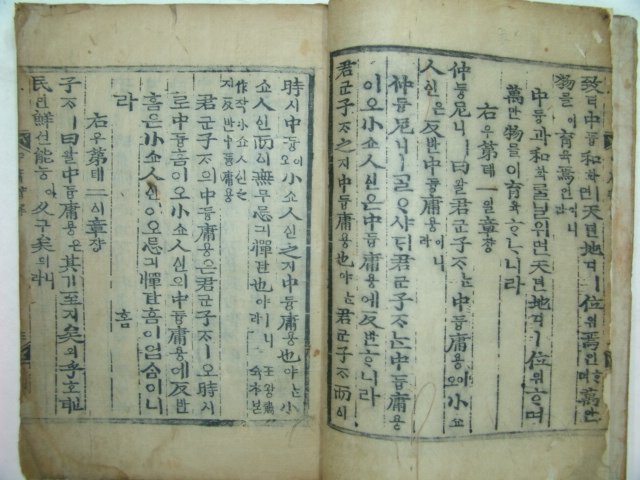 致티中듕和화ㅣ면天텬地디ㅣ位위焉언ᄒᆞ며萬만
物믈이育육焉언이니라
中듕과和화ᄅᆞᆯ닐위면天텬地디ㅣ位위ᄒᆞ며
萬만物믈이育육ᄒᆞᄂᆞ니라
右우第뎨一일章쟝
仲듕尼니ㅣ曰왈君군子ᄌᆞᄂᆞᆫ中듕庸용이오小쇼
人ᅀᅵᆫ은反반中듕庸용이니라
仲듕尼니ㅣᄀᆞᆯᄋᆞ샤ᄃᆡ君군子ᄌᆞᄂᆞᆫ中듕庸용
이오小쇼人ᅀᅵᆫ은中듕庸용에反반ᄒᆞ니라
君군子ᄌᆞ之지中듕庸용也야ᄂᆞᆫ君군子ᄌᆞ而ᅀᅵ
時시中듕이오小쇼人ᅀᅵᆫ之지中듕庸용也야ᄂᆞᆫ小
쇼人ᅀᅵᆫ而ᅀᅵ無무忌긔憚탄也야ㅣ니라 王왕肅슉本본
作작小쇼人ᅀᅵᆫ之
지反반中듕庸용
君군子ᄌᆞ의中듕庸용은君군子ᄌᆞㅣ오時시
로中듕홈이오小쇼人ᅀᅵᆫ의中듕庸용에反반
홈은小쇼人ᅀᅵᆫ이오忌긔憚탄홈이업슴이니
라
右우第뎨二ᅀᅵ章쟝
子ᄌᆞㅣ曰왈中듕庸용은其기至지矣의乎호ᅟᅵᆫ뎌
民민鮮션能능이久구矣의니라